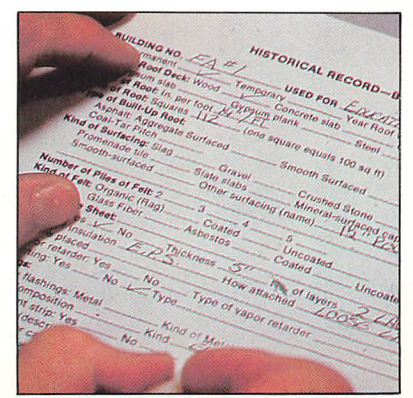 HISTORICAL RECORD—B
BUILDING NO. EA #1 USED FOR EDUCATI
Permanent Temporary Year Roof
Roof Deck: Wood Concrete slab Steel
slab Gypsum plank
Roof: In. per foot
of Roof: Squares 112 (one square equals 100 sq ft)
of Built-Up Roof:
Asphalt: Aggregate Surfaced Smooth Surfaced
Coal-Tar Pitch
Kind of Surfacing: Slag Gravel Crushed Stone
Promenade tile Slate slabs Mineral-surfaced cap
Smooth-surfaced Other surfacing (name)
Number of Plies of Felt: 2 3 4 5
Kind of Felt: Organic (Rag) Coated Uncoated
Glass Fiber Asbestos Coated Uncoate
Sheet:
No Thickness 5" of layers 2
insulation E.P.S How attached LOOSE
placed
or retarder: Yes No Type of vapor retarder
ing: Yes No Type
flashings: Metal Kind of Met
mposition
nt strip: Yes No Kind